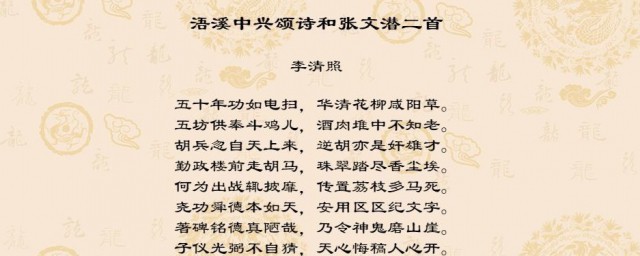 浯溪中兴颂诗和张文潜二首
李清照
五十年功如电扫，华清花柳咸阳草。
五坊供奉斗鸡儿，酒肉堆中不知老。
胡兵忽自天上来，逆胡亦是奸雄才。
勤政楼前走胡马，珠翠踏尽香尘埃。
何为出战辄披靡，传置荔枝多马死。
尧功舜德本如天，安用区区纪文字。
著碑铭德真陋哉，乃令神鬼磨山崖。
子仪光弼不自猜，天心悔祸人心开。